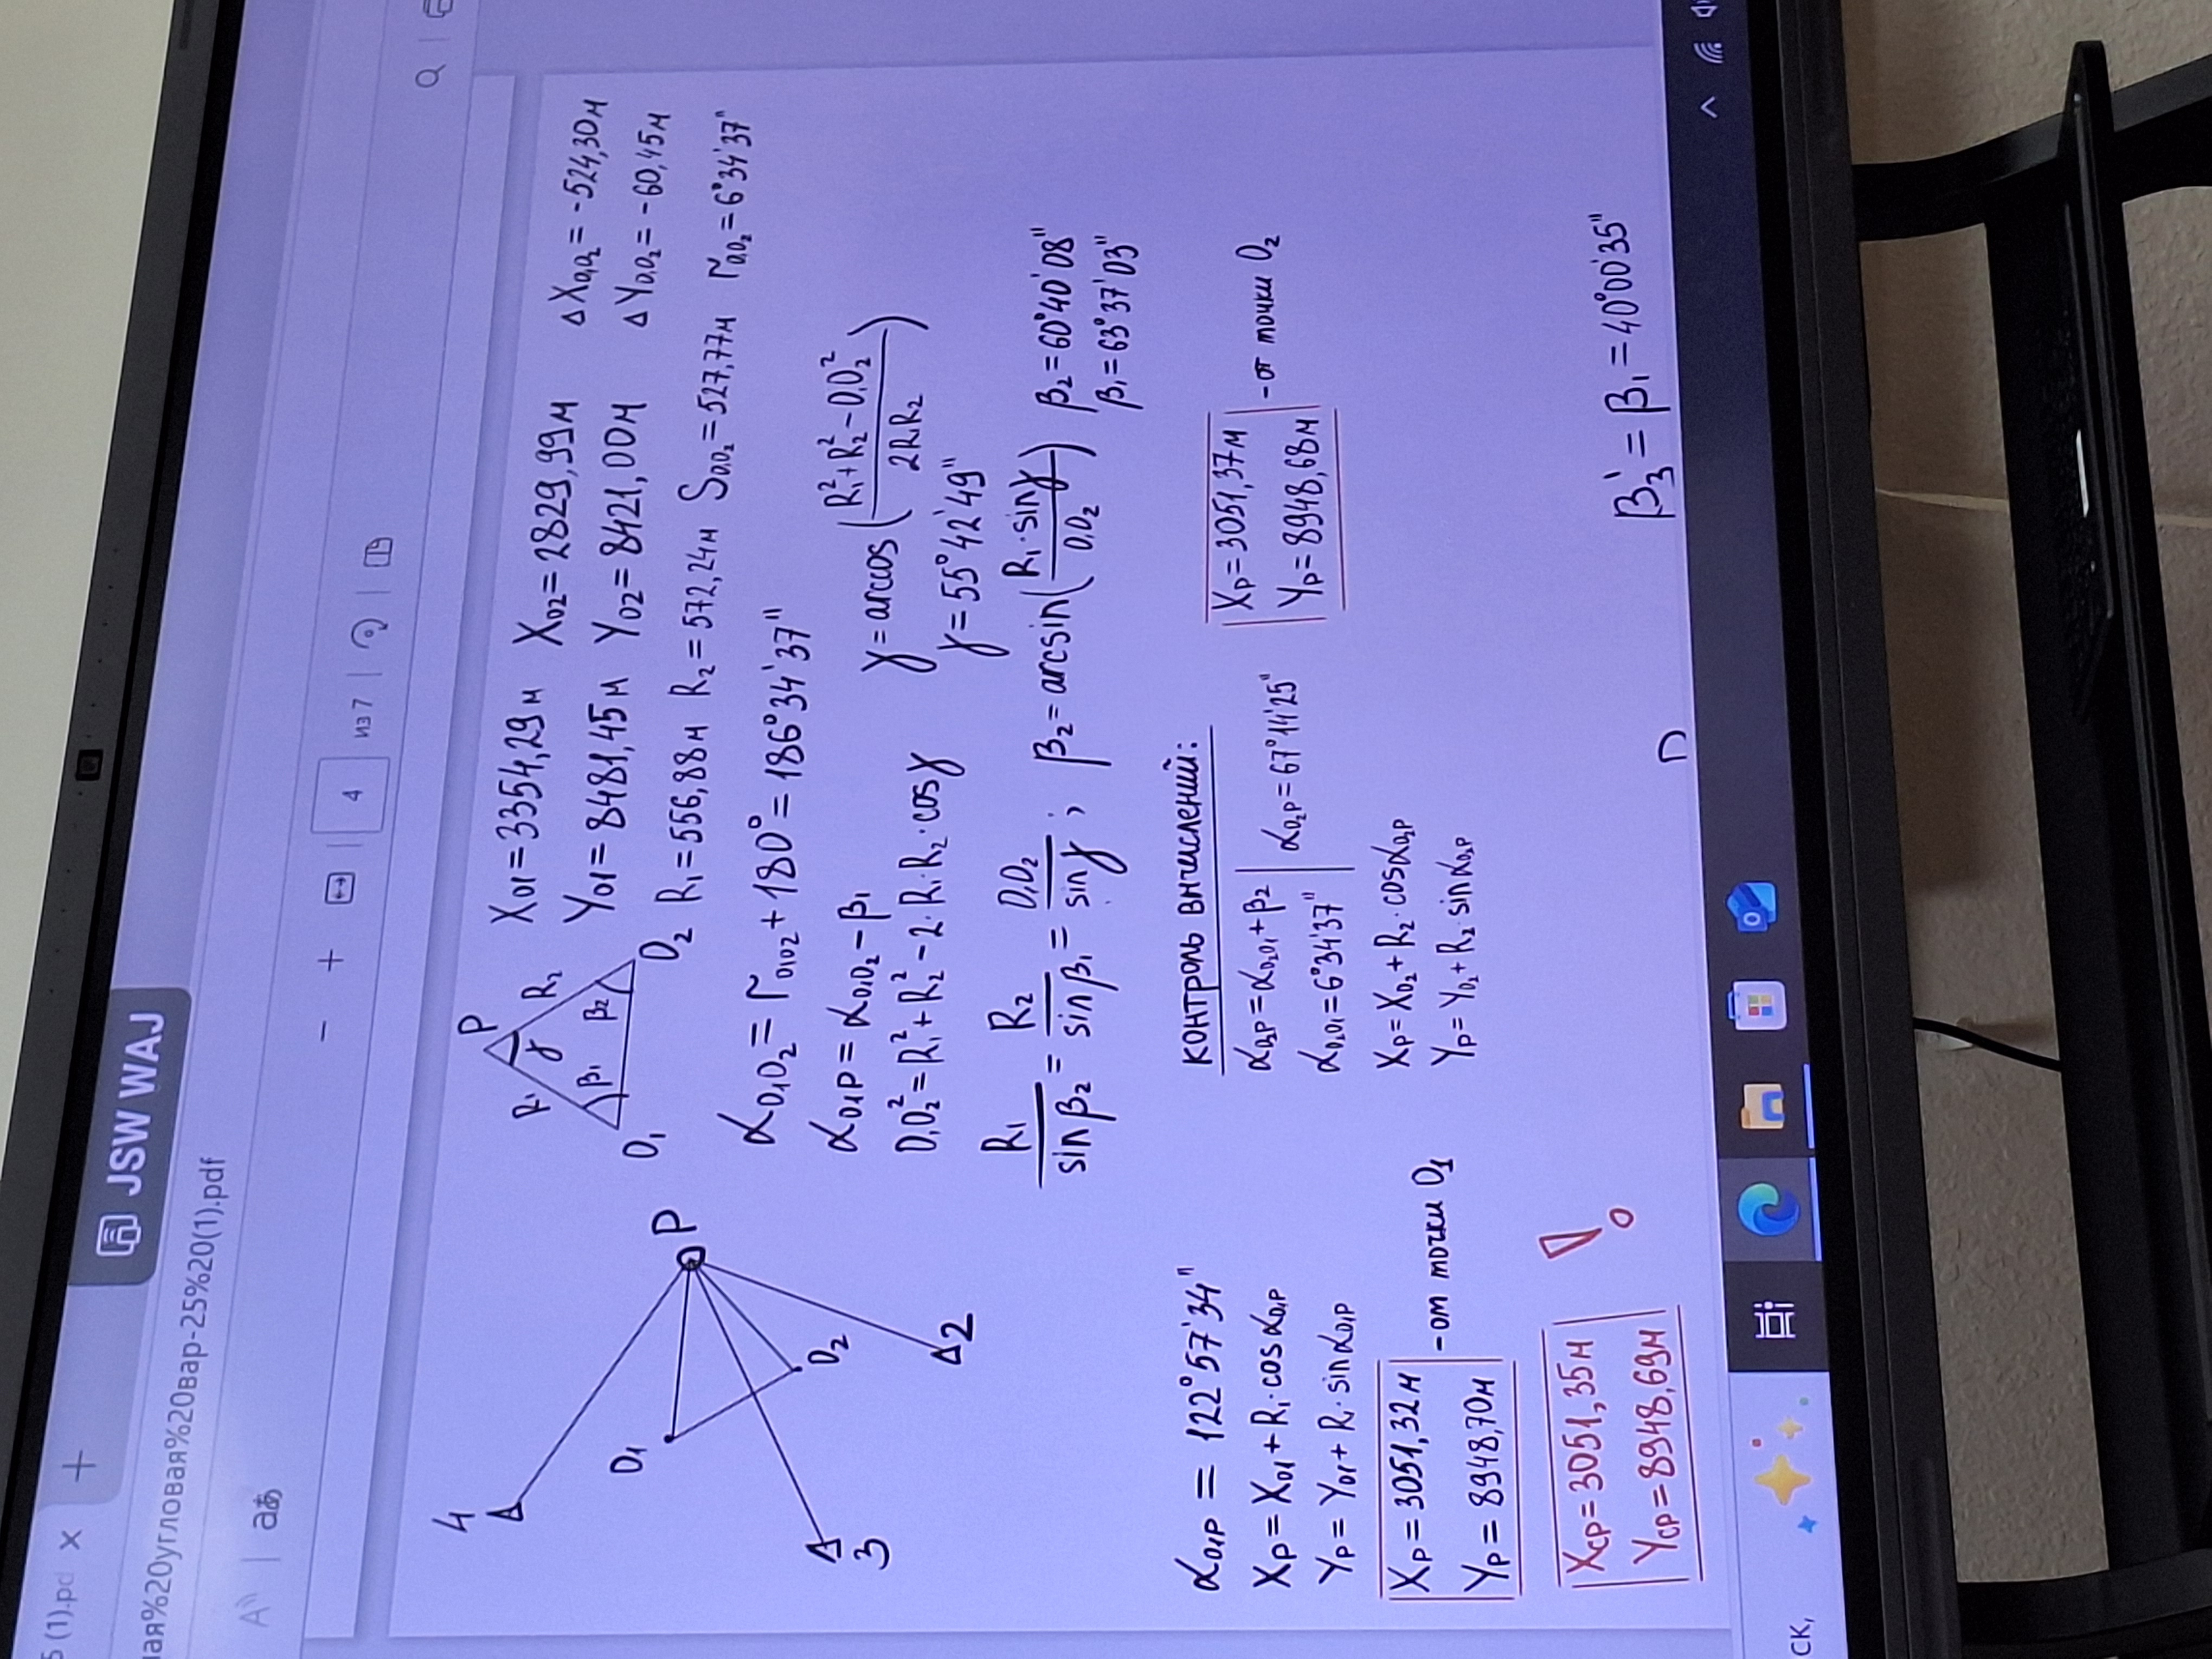 5 (1).pd × +
JSW WAJ
ная%20угловая%20вар-25%20(1).pdf
A | aあ
− + | 4 из 7
4
O₁
3
O₂
2
P
P
R₁ γ R₂
β₁ β₂
O₁ O₂
X₀₁=3354,29м X₀₂=2829,99м ΔX₀₁₀₂=-524,30м
Y₀₁=8481,45м Y₀₂=8421,00м ΔY₀₁₀₂=-60,45м
R₁=556,88м R₂=572,24м S₀₁₀₂=527,77м r₀₁₀₂=6°34'37"
α₀₁₀₂=r₀₁₀₂+180°=186°34'37"
α₀₁P=α₀₁₀₂-β₁
O₁O₂²=R₁²+R₂²-2·R₁·R₂·cosγ
γ=arccos((R₁²+R₂²-O₁O₂²)/(2R₁R₂))
γ=55°42'49"
R₁/sinβ₂=R₂/sinβ₁=O₁O₂/sinγ; β₂=arcsin((R₁·sinγ)/O₁O₂) β₂=60°40'08"
β₁=63°37'03"
α₀₁P=122°57'34"
Xp=X₀₁+R₁·cosα₀₁P
Yp=Y₀₁+R₁·sinα₀₁P
Xp=3051,32м
Yp=8948,70м
-от точки O₁
контроль вычислений:
α₀₂P=α₀₂₀₁+β₂ | α₀₂P=67°14'25"
α₀₂₀₁=6°34'37"
Xp=X₀₂+R₂·cosα₀₂P
Yp=Y₀₂+R₂·sinα₀₂P
Xp=3051,37м
Yp=8948,68м
-от точки O₂
Xcp=3051,35м
Ycp=8948,69м
!
β₃'=β₁=40°00'35"
ск,